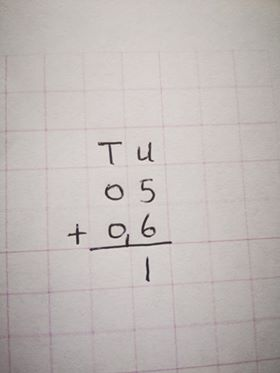 T U
0 5
+ 0,6
1